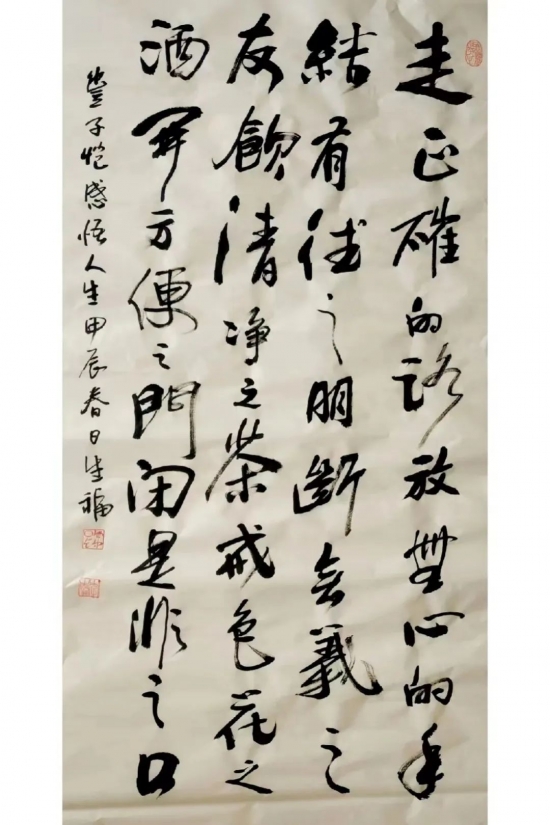 走正確的路放無心的手
結有德之朋斷無義之
友飲清净之茶戒色花之
酒開方便之門闭是非之口
豐子愷感悟人生甲辰春日生福